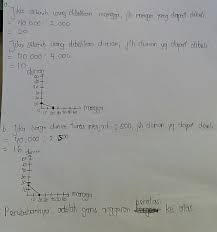 a. Jika seluruh uang dibelikan mangga, jlh mangga yang dapat dibeli
= 40.000 : 2.000
= 20
Jika seluruh uang dibelikan durian, jlh durian yg dapat dibeli
= 40.000 : 4.000
= 10
durian
mangga
b. Jika harga durian turun menjadi 2.500, jlh durian yg dapat dibeli
= 40.000 : 2.500
= 16
durian
mangga
Perubahannya adalah garis anggaran ke atas